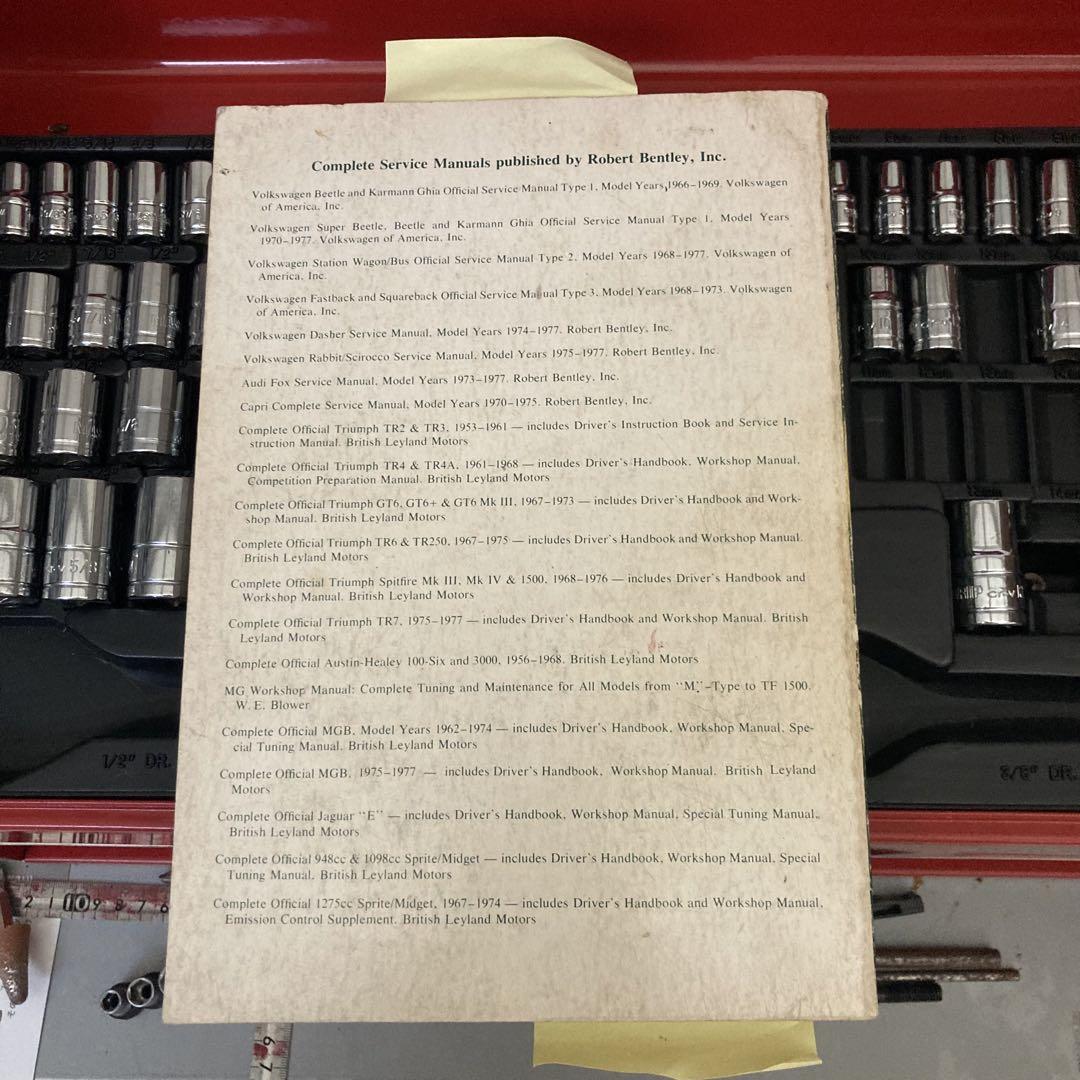 Complete Service Manuals published by Robert Bentley, Inc.
Volkswagen Beetle and Karmann Ghia Official Service Manual Type 1, Model Years 1966–1969. Volkswagen
of America, Inc.
Volkswagen Super Beetle, Beetle and Karmann Ghia Official Service Manual Type 1, Model Years
1970–1977. Volkswagen of America, Inc.
Volkswagen Station Wagon/Bus Official Service Manual Type 2, Model Years 1968–1977. Volkswagen of
America, Inc.
Volkswagen Fastback and Squareback Official Service Manual Type 3, Model Years 1968–1973. Volkswagen
of America, Inc.
Volkswagen Dasher Service Manual, Model Years 1974–1977. Robert Bentley, Inc.
Volkswagen Rabbit/Scirocco Service Manual, Model Years 1975–1977. Robert Bentley, Inc.
Audi Fox Service Manual, Model Years 1973–1977. Robert Bentley, Inc.
Capri Complete Service Manual, Model Years 1970–1975. Robert Bentley, Inc.
Complete Official Triumph TR2 & TR3, 1953–1961 — includes Driver's Instruction Book and Service In-
struction Manual. British Leyland Motors
Complete Official Triumph TR4 & TR4A, 1961–1968 — includes Driver's Handbook, Workshop Manual,
Competition Preparation Manual. British Leyland Motors
Complete Official Triumph GT6, GT6+ & GT6 Mk III, 1967–1973 — includes Driver's Handbook and Work-
shop Manual. British Leyland Motors
Complete Official Triumph TR6 & TR250, 1967–1975 — includes Driver's Handbook and Workshop Manual.
British Leyland Motors
Complete Official Triumph Spitfire Mk III, Mk IV & 1500, 1968–1976 — includes Driver's Handbook and
Workshop Manual. British Leyland Motors
Complete Official Triumph TR7, 1975–1977 — includes Driver's Handbook and Workshop Manual. British
Leyland Motors
Complete Official Austin-Healey 100-Six and 3000, 1956–1968. British Leyland Motors
MG Workshop Manual: Complete Tuning and Maintenance for All Models from "M"-Type to TF 1500.
W. E. Blower
Complete Official MGB, Model Years 1962–1974 — includes Driver's Handbook, Workshop Manual, Spe-
cial Tuning Manual. British Leyland Motors
Complete Official MGB, 1975–1977 — includes Driver's Handbook, Workshop Manual. British Leyland
Motors
Complete Official Jaguar "E" — includes Driver's Handbook, Workshop Manual, Special Tuning Manual.
British Leyland Motors
Complete Official 948cc & 1098cc Sprite/Midget — includes Driver's Handbook, Workshop Manual, Special
Tuning Manual. British Leyland Motors
Complete Official 1275cc Sprite/Midget, 1967–1974 — includes Driver's Handbook and Workshop Manual,
Emission Control Supplement. British Leyland Motors
1/2" DR.
3/8" DR.
2 1 10 9 8 7 6
6 7